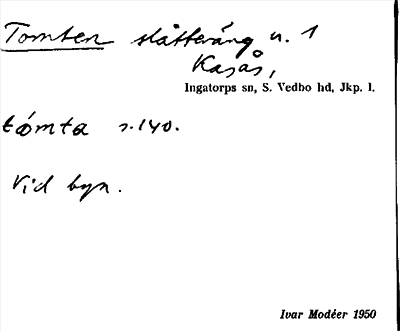 Tomten slåtteräng n. 1
Kasås,
Ingatorps sn, S. Vedbo hd, Jkp. l.
tómta s.140.
Vid byn.
Ivar Modéer 1950